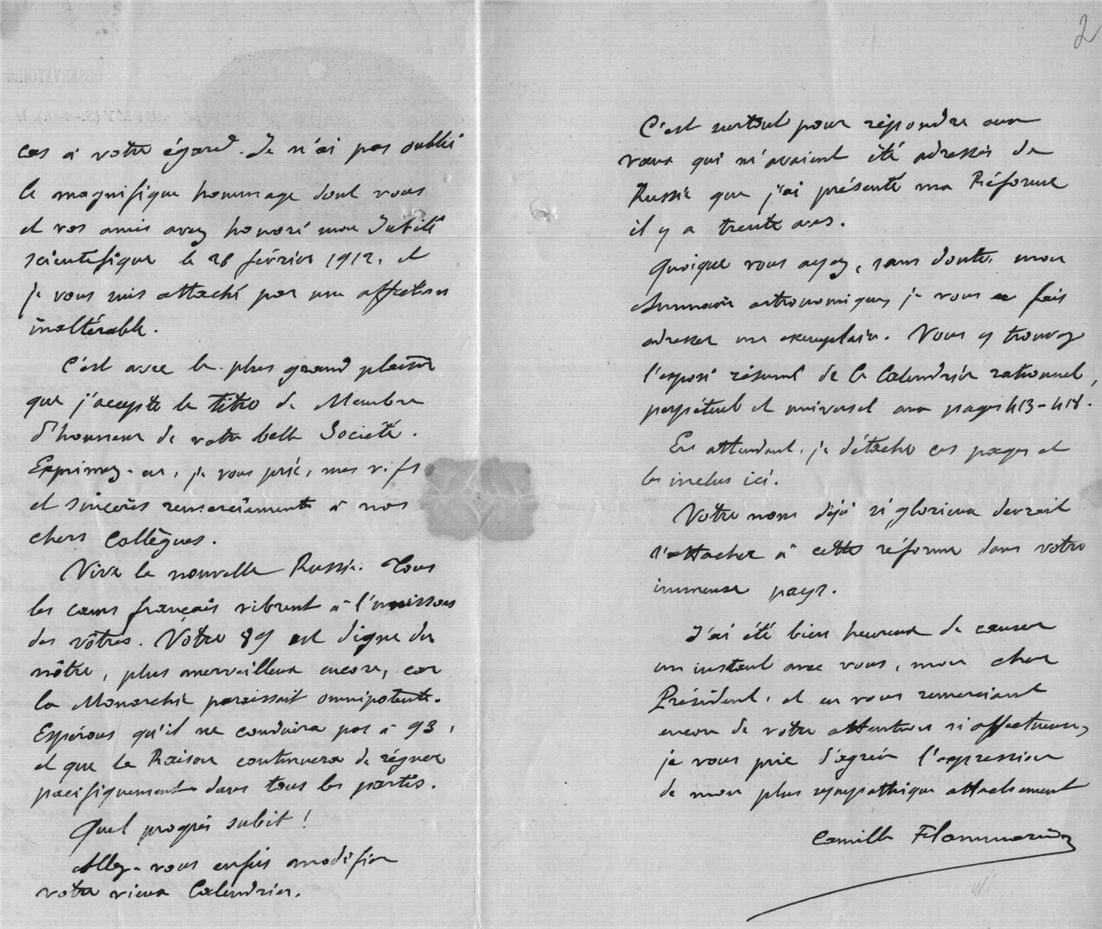 2
cas à votre égard. Je n'ai pas oublié
le magnifique hommage dont vous
et vos amis avez honoré mon Jubilé
scientifique le 26 février 1912, et
je vous suis attaché par une affection
inaltérable.
C'est avec le plus grand plaisir
que j'accepte le titre de Membre
d'honneur de votre belle Société.
Exprimez-en, je vous prie, mes vifs
et sincères remerciements à nos
chers Collègues.
Vive la nouvelle Russie. Tous
les cœurs français vibrent à l'unisson
des vôtres. Votre 89 est digne du
nôtre, plus merveilleux encore, car
la Monarchie paraissait omnipotente.
Espérons qu'il ne conduira pas à 93,
et que la Raison continuera de régner
pacifiquement dans tous les partis.
Quel progrès subit !
Allez-vous enfin modifier
votre vieux Calendrier.
C'est surtout pour répondre aux
vœux qui m'avaient été adressés de
Russie que j'ai présenté ma Réforme
il y a trente ans.
Quoique vous ayez, sans doute, mon
Annuaire astronomique, je vous en fais
adresser un exemplaire. Vous y trouvez
l'exposé résumé de ce Calendrier rationnel,
perpétuel et universel aux pages 413-418.
En attendant, je détache ces pages et
les inclus ici.
Votre nom déjà si glorieux devrait
s'attacher à cette réforme dans votre
immense pays.
J'ai été bien heureux de causer
un instant avec vous, mon cher
Président, et en vous remerciant
encore de votre attention si affectueuse,
je vous prie d'agréer l'expression
de mon plus sympathique attachement
Camille Flammarion